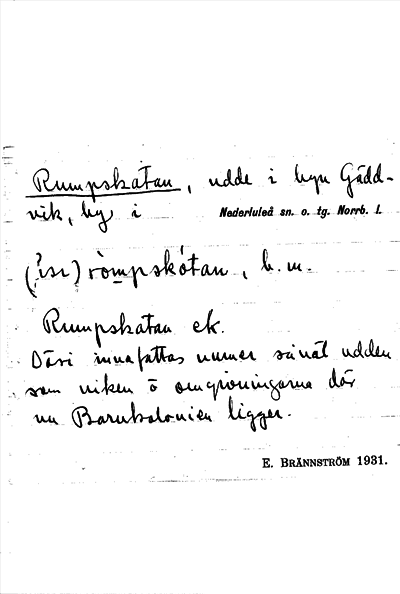 Rumpskatan, udde i byn Gädd-
vik, by i Nederluleå sn. o. tg. Norrb. l.
(²isı) ròmpskótan, b. m.
Rumpskatan ek.
Däri innefattas numer såväl udden
som viken o omgivningarna där
nu Barnkolonien ligger.
E. BRÄNNSTRÖM 1931.